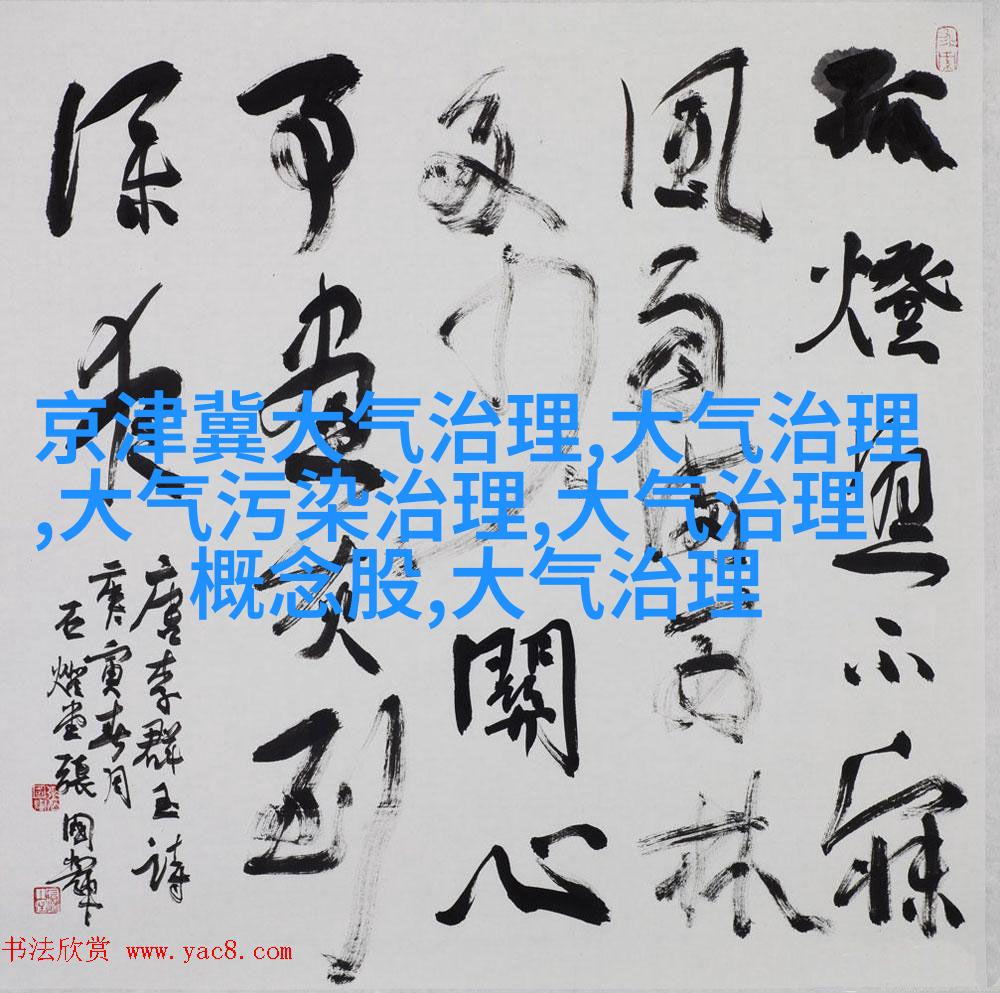 孤燈照不寐
風雨滿西林
多少關心
事書灰到
深夜
唐李群玉詩
庚寅春月
石堂張國
京津冀大气治理,大气治理
,大气污染治理,大气治理
概念股,大气治理
书法欣赏 www.yac8.com